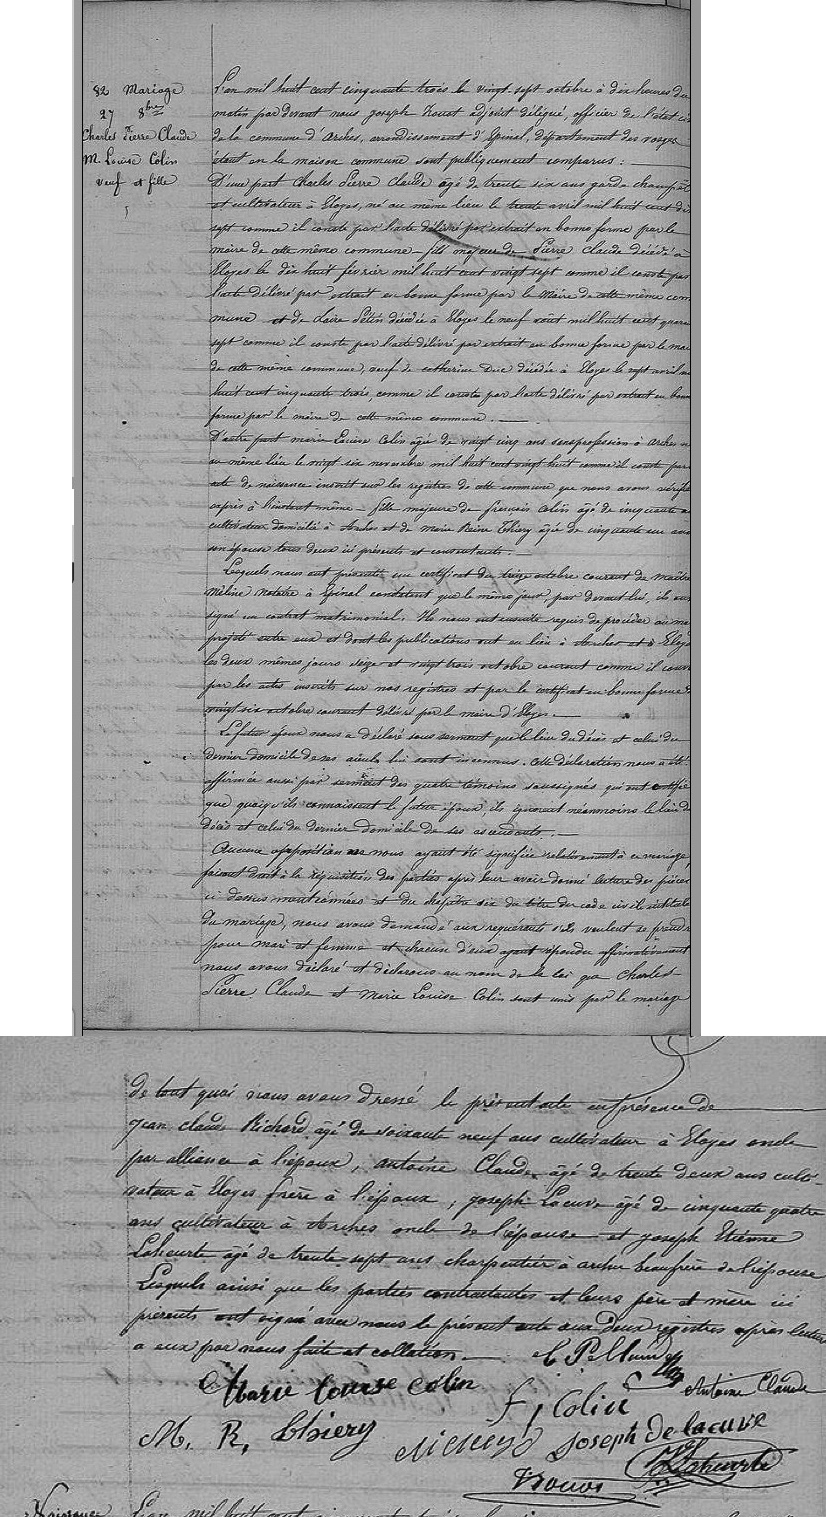 82 Mariage
27 8bre
Charles Pierre Claude
M. Louise Colin
veuf et fille
L'an mil huit cent cinquante trois le vingt sept octobre à dix heures du
matin par devant nous Joseph adjoint délégué, officier de l'état civ
de la commune d'Arches, arrondissement d'Epinal, département des vosges
étant en la maison commune sont publiquement comparus :
D'une part Charles Pierre Claude agé de trente six ans garde champêt
et cultivateur à Eloyes, né au même lieu le trente avril mil huit cent di
sept comme il conste par l'acte délivré par extrait en bonne forme par le
maire de cette même commune fils majeur de Pierre Claude décédé à
Eloyes le dix huit février mil huit cent vingt sept comme il conste par
l'acte délivré par extrait en bonne forme par le Maire de cette même com
mune et de Petin décédée à Eloyes le neuf août mil huit cent quara
sept comme il conste par l'acte délivré par extrait en bonne forme par le mai
de cette même commune, veuf de catherine Duc décédée à Eloyes le sept avril m
huit cent cinquante trois, comme il conste par l'acte délivré par extrait en bon
forme par le maire de cette même commune.
D'autre part marie Louise Colin agée de vingt cinq ans sans profession à Arches n
au même lieu le vingt six novembre mil huit cent vingt huit comme il conste par
acte de naissance inscrit sur les registres de cette commune que nous avons vérifié
à l'instant même - fille majeure de françois Colin âgé de cinquante a
cultivateur domicilié à Arches et de Marie Reine Thiery âgée de cinquante un ans
son épouse tous deux ici présents et consentants.
Lesquels nous ont présenté un certificat du treize octobre courant de maître
Méline Notaire à Epinal constatant que le même jour, par devant lui, ils ont
signé un contrat matrimonial. Ils nous ont ensuite requis de procéder au ma
projeté entre eux et dont les publications ont eu lieu à Arches et à Eloy
les deux mêmes jours seize et vingt trois octobre courant comme il cons
par les actes inscrits sur nos registres et par le certificat en bonne forme
vingt six octobre courant délivré par le maire d'Eloyes.
Le futur époux nous a déclaré sous serment que le lieu du décès et celui du
dernier domicile de ses aïeuls lui sont inconnus. Cette déclaration nous a été
affirmée aussi par serment des quatre témoins soussignés qui ont certifié
que quoiqu'ils connaissent le futur époux, ils ignorent néanmoins le lieu de
décès et celui du dernier domicile de ses ascendants.
Aucune opposition ne nous ayant été signifiée relativement à ce mariage
faisant droit à la réquisition des parties après leur avoir donné lecture des pièces
ci dessus mentionnées et du chapitre six du titre du code civil intitulé
du mariage, nous avons demandé aux requérants s'ils veulent se prendre
pour mari et femme et chacun d'eux ayant répondu affirmativement
nous avons déclaré et déclarons au nom de la loi que Charles
Pierre Claude et Marie Louise Colin sont unis par le mariage
de tout quoi nous avons dressé le présent acte en présence de
Jean Claude Richard âgé de soixante neuf ans cultivateur à Eloyes oncle
par alliance à l'époux, Antoine Claude âgé de trente deux ans culti-
vateur à Eloyes frère à l'époux, Joseph Lacuve âgé de cinquante quatre
ans cultivateur à Arches oncle de l'épouse et Joseph Etienne
Laheurte agé de trente sept ans charpentier à arches beaufrère de l'épouse
Lesquels ainsi que les parties contractantes et leurs père et mère ici
présents ont signé avec nous le présent acte aux deux registres après lecture
a eux par nous faite et collation.
Marie Lourse Colin
Antoine Claude
f, Colin
M. R, Thiery
Joseph De lacuve
Laheurte
L'an mil huit cent